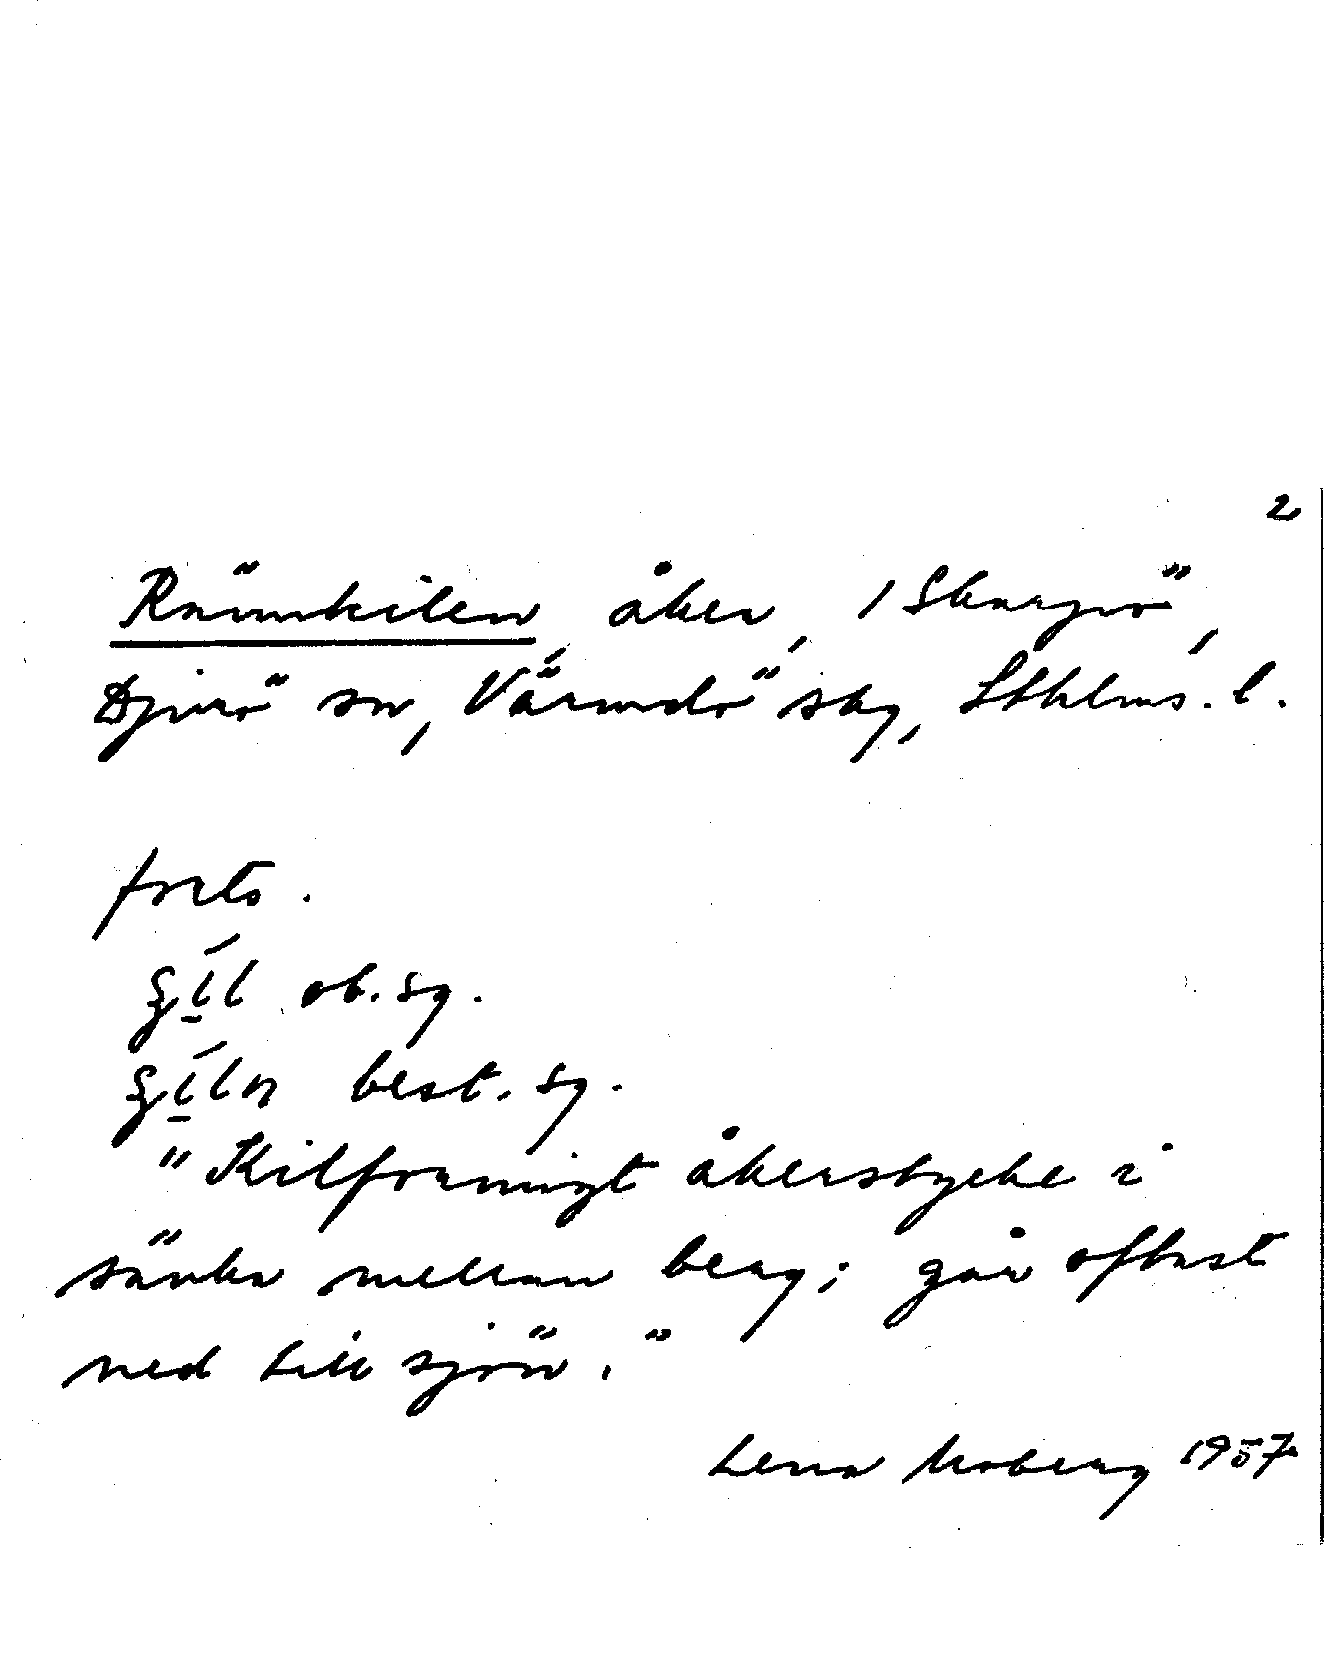 2
Rävmkilen, åker, / Skarpö,
Djurö sn, Värmdö skg, Sthlms. l.
forts.
ob. sg.
best. sg.
"Kilformigt åkerstycke i
sänka mellan berg; går oftast
ned till sjön."
Lena Moberg 1957